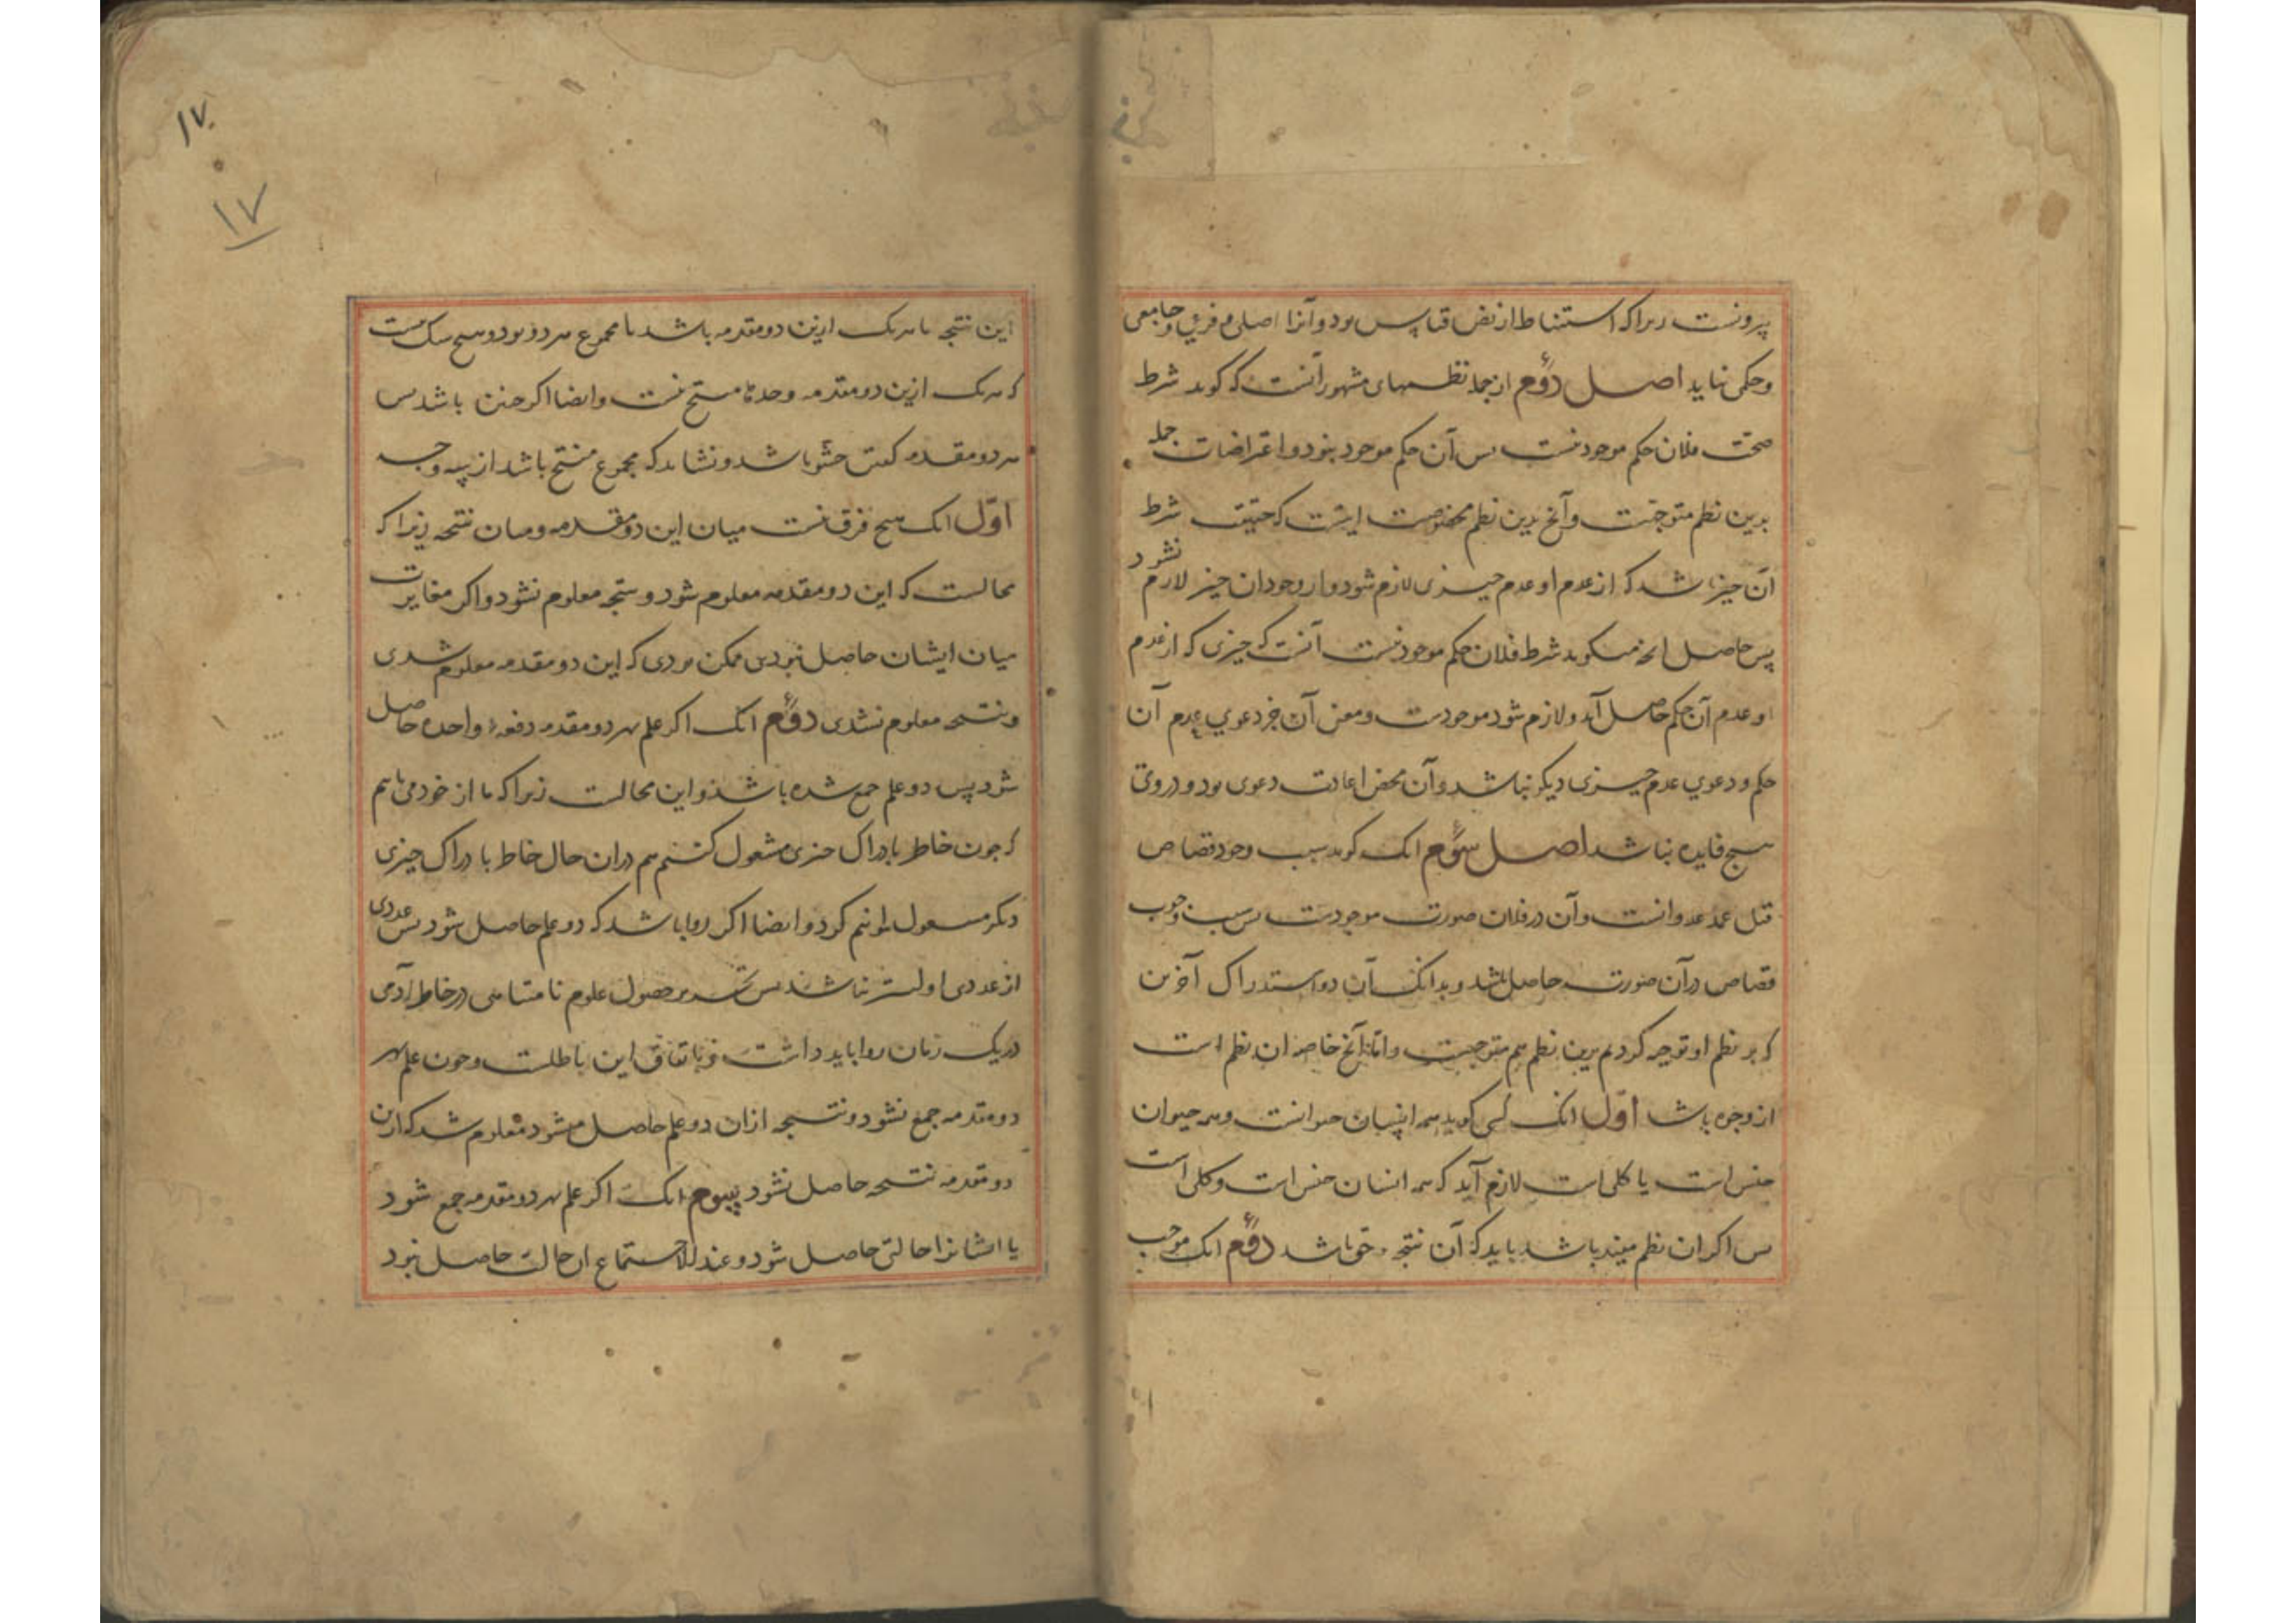 بیرونست زیراکه استنباط از نص قیاس بود و آنرا اصلی و فرعی و جامعی
و حکمی نباید اصل دوم از جمله نظمهای مشهور آنست که کوید شرط
صحت فلان حکم موجود نیست پس آن حکم موجود نبود و اعتراضات جمله
بدین نظم متوجهست و آنچ بدین نظم مخصوصست اینست که حقیقت شرط
آن چیز باشد که از عدم او عدم چیزی لازم شود و از وجود آن چیز لازم نشود
پس حاصل آنچه میکوید شرط فلان حکم موجود نیست آنست که چیزی که از عدم
او عدم آن حکم حاصل آید و لازم شود موجودست و معنی آن جز دعوی عدم آن
حکم و دعوی عدم چیزی دیکر نباشد و آن محض اعادت دعوی بود و دروی
هیچ فایده نباشد اصل سوم آنک کوید سبب وجود قصاص
قتل عمد عدوانست و آن در فلان صورت موجودست پس سبب وجوب
قصاص در آن صورت حاصل باشد و بدانک آن دو استدراک آخرین
که بر نظم او توجیه کردیم برین نظم هم متوجهست و اما آنچ خاصه این نظم است
از وجوه باشد اول آنک کسی کوید همه انسان حیوانست و همه حیوان
جنس است یا کلی است لازم آید که همه انسان جنس است و کلی است
پس اکر این نظم مفید باشد باید که آن نتیجه حق باشد دوم آنک موجب
۱۷
۱۷
این نتیجه یا هریک ازین دو مقدمه باشد یا مجموع هر دو بود و هیچ شک نیست
که هریک ازین دو مقدمه وحدها منتج نیست و ایضا اکر چنین باشد پس
هر دو مقدمه کفتن حشو باشد و نشاید که مجموع منتج باشد از سه وجه
اول آنک هیچ فرق نیست میان این دو مقدمه و میان نتیجه زیرا که
محالست که این دو مقدمه معلوم شود و نتیجه معلوم نشود و اکر مغایرت
میان ایشان حاصل بودی ممکن بودی که این دو مقدمه معلوم شدی
و نتیجه معلوم نشدی دوم آنک اکر علم بهر دو مقدمه دفعة واحده حاصل
شود پس دو علم جمع شده باشد و این محالست زیرا که ما از خود می یابیم
که چون خاطر بادراک چیزی مشغول کنیم هم دران حال خاطر بادراک چیزی
دیکر مشغول نتوانیم کرد و ایضا اکر روا باشد که دو علم حاصل شود پس عددی
از عددی اولیتر نباشد پس حصول علوم نامتناهی در خاطر آدمی
در یک زمان روا باید داشت و باتفاق این باطلست و چون علم بهر
دو مقدمه جمع نشود و نتیجه ازان دو علم حاصل میشود معلوم شد که ازین
دو مقدمه نتیجه حاصل نشود سوم آنک اکر علم بهر دو مقدمه جمع شود
یا ایشانرا حالتی حاصل شود و عند الاجتماع ان حالت حاصل نبود